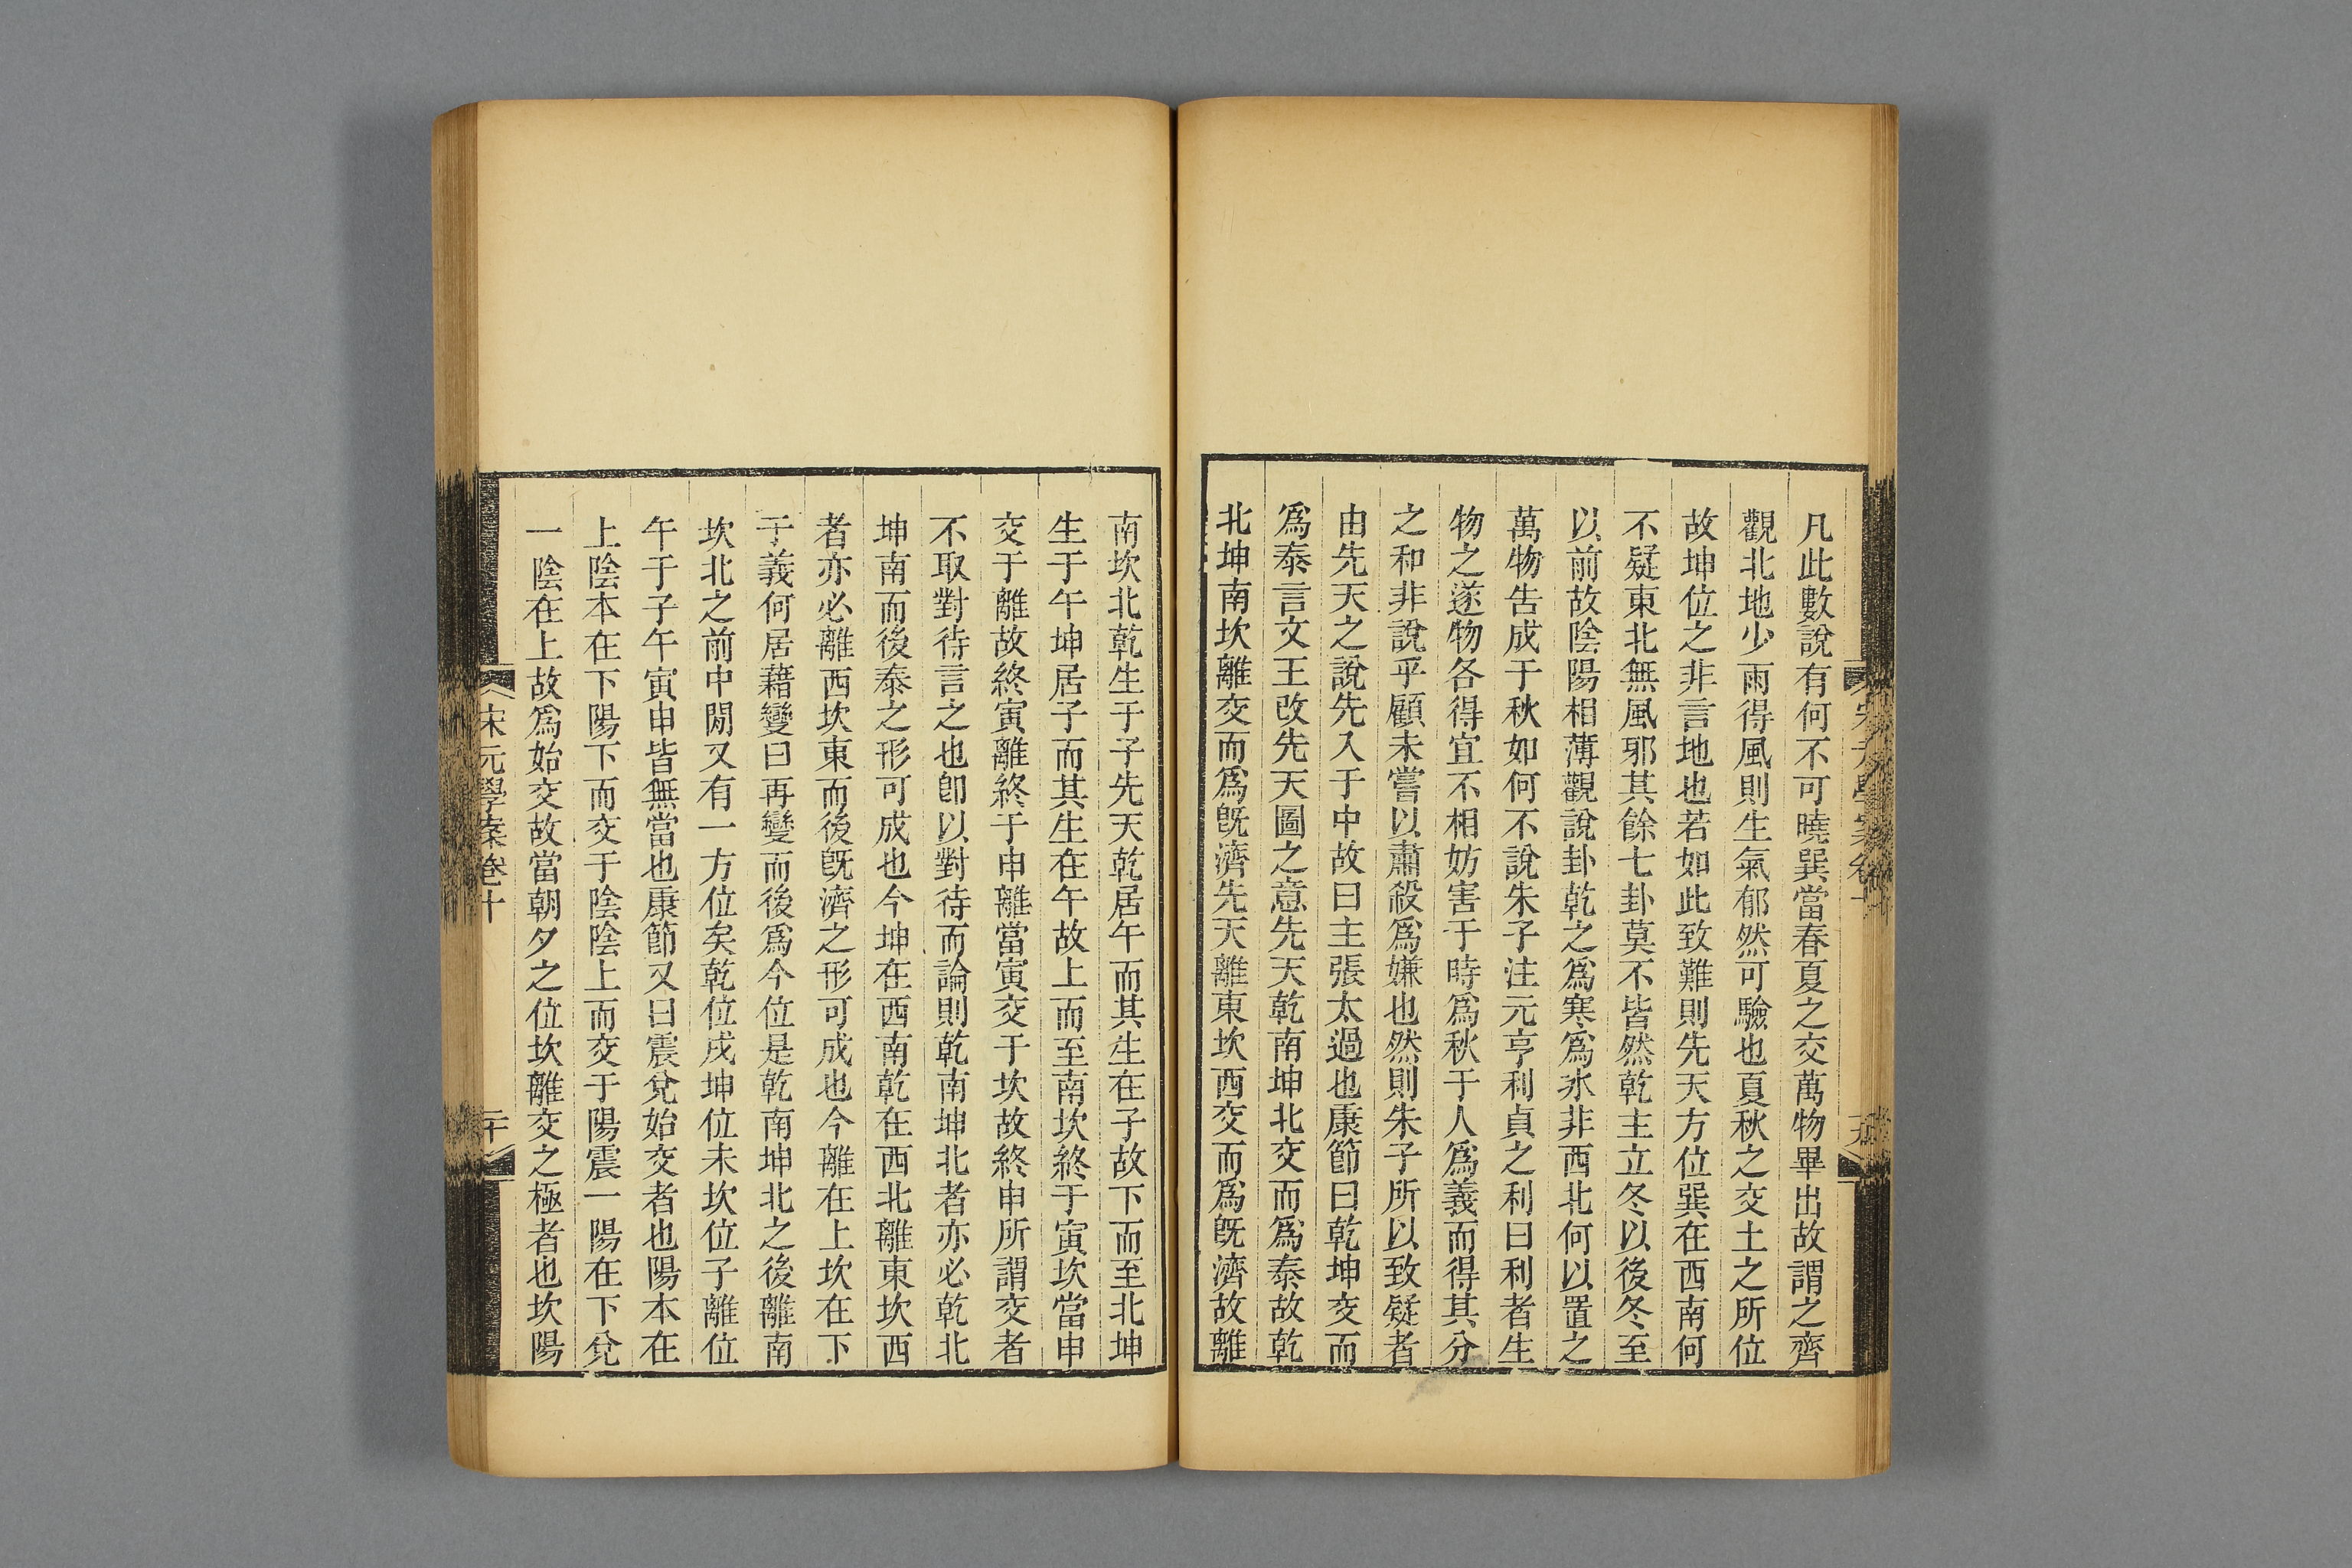 凡此數說有何不可曉巽當春夏之交萬物畢出故謂之齊
觀北地少雨得風則生氣郁然可驗也夏秋之交土之所位
故坤位之非言地也若如此致難則先天方位巽在西南何
不疑東北無風邪其餘七卦莫不皆然乾主立冬以後冬至
以前故陰陽相薄觀說卦乾之爲寒爲冰非西北何以置之
萬物告成于秋如何不說朱子注元亨利貞之利曰利者生
物之遂物各得宜不相妨害于時爲秋于人爲義而得其分
之和非說乎顧未嘗以肅殺爲嫌也然則朱子所以致疑者
由先天之說先入于中故曰主張太過也康節曰乾坤交而
爲泰言文王改先天圖之意先天乾南坤北交而爲泰故乾
北坤南坎離交而爲旣濟先天離東坎西交而爲旣濟故離
南坎北乾生于子先天乾居午而其生在子故下而至北坤
生于午坤居子而其生在午故上而至南坎終于寅坎當申
交于離故終寅離終于申離當寅交于坎故終申所謂交者
不取對待言之也卽以對待而論則乾南坤北者亦必乾北
坤南而後泰之形可成也今坤在西南乾在西北離東坎西
者亦必離西坎東而後旣濟之形可成也今離在上坎在下
于義何居藉變曰再變而後爲今位是乾南坤北之後離南
坎北之前中閒又有一方位矣乾位戌坤位未坎位子離位
午于子午寅申皆無當也康節又曰震兌始交者也陽本在
上陰本在下陽下而交于陰陰上而交于陽震一陽在下兌
一陰在上故爲始交故當朝夕之位坎離交之極者也坎陽
宋元學案卷十
二十